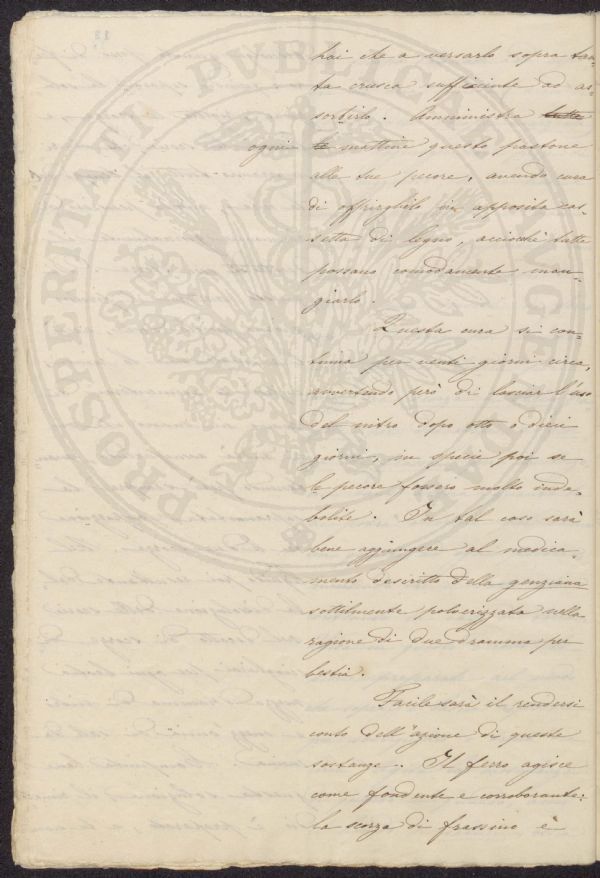 hai che a versarlo sopra tan-
ta crusca sufficiente ad as-
sorbirlo. Amministra tutte
ogni le mattine questo pastone
alle tue pecore, avendo cura
di offrirglielo in apposita cas-
setta di legno, acciocchè tutte
possano comodamente man-
giarlo.
Questa cura si con-
tinua per venti giorni circa,
avvertendo però di lasciar l'uso
del nitro dopo otto o dieci
giorni, in specie poi se
le pecore fossero molto inde-
bolite. In tal caso sarà
bene aggiungere al medica-
mento descritto della genziana
sottilmente polverizzata nella
ragione di due dramme per
bestia.
Facile sarà il rendersi
conto dell'azione di queste
sostanze. Il ferro agisce
come fondente e corroborante:
la scorza di frassino è
PROSPERITATI PVBLICAE AVGENDAE